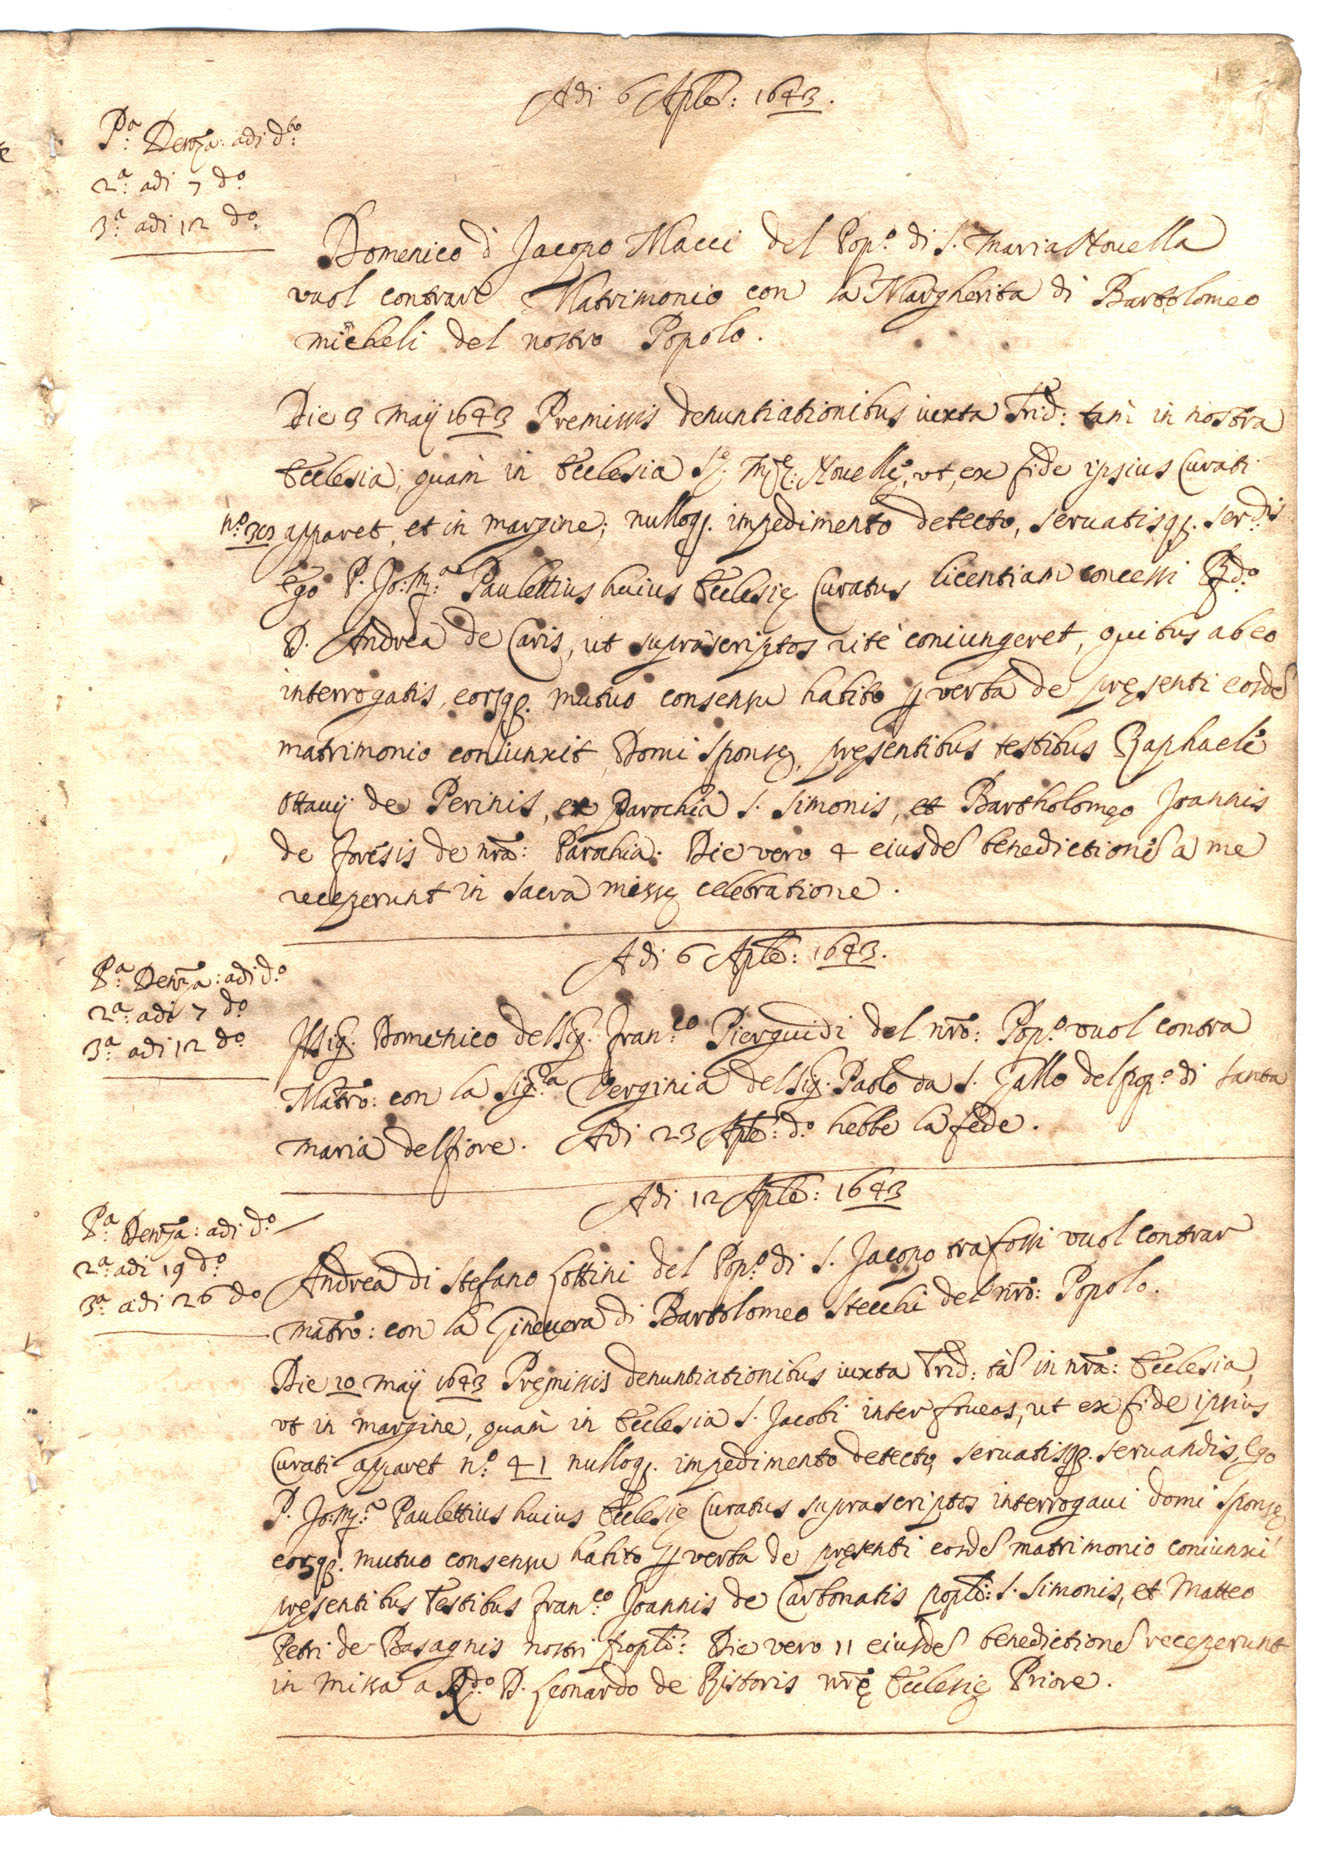 Adi 6 Aple: 1643.
Pa. Denza: adi do.
2a. adi 7 do.
3a. adi 12 do.
Domenico d Jacopo Macci del Popo. di S. Maria Novella
vuol contrare Matrimonio con la Margherita di Bartolomeo
micheli del nostro Popolo.
Die 3 maij 1643 Premissis denuntiationibus iuxta Trid: tam in nostra
Ecclesia, quam in Ecclesia Se. Mae. Novelle, ut, ex fide ipsius Curati
no. 303 apparet, et in margine; nulloq. impedimento detecto, seruatisq. serdis.
Ego P. Jo: Ma. Paulettius huius Ecclesię Curatus licentiam concessi Rdo.
D. Andrea de Caris, ut suprascriptos rite coniungeret, quibus ab eo
interrogatis, eorsq. mutuo consensu habito p verba de pręsenti eosde
matrimonio coniunxit Domi sponsę, pręsentibus testibus Raphaele
Ottavij de Perinis, ex parochia S. Simonis, et Bartholomęo Joannis
de foresis de nra: Parochia. Die vero 4 eiusde benedictione a me
receperunt in sacra missę celebratione.
Adi 6 Aple: 1643.
Pa. Denza: adi do.
2a. adi 7 do.
3a. adi 12 do.
Il Sig. Domenico del Sig. Franco. Pierguidi del nro: Popo. vuol contra
Matro: con la Siga. Verginia del Sig. Paolo da S. Gallo del popo. di Santa
maria del fiore. Adi 23 Aple: do. hebbe la fede.
Adi 12 Aple: 1643
Pa. Denza: adi do.
2a. adi 19 do.
3a. adi 26 do
Andrea di Stefano Lottini del Popo. di S. Jacopo tra fossi vuol contrar
matro: con la Ginevera di Bartolomeo Stecchi del nro: Popolo.
Die 10 maij 1643 Pręmissis denuntiationibus iuxta Trid: ta in nra: Ecclesia,
ut in margine, quam in Ecclesia S. Jacobi inter foueas, ut ex fide ipsius
Curati apparet no. 41 nulloq. impedimento detecto, seruatisq. seruandis, Ego
P. Jo: Ma. Paulettius huius Ecclesię Curatus suprascriptos interrogaui domi sponsę
eorsq. mutuo consensu habito p verba de pręsenti eosde matrimonio coniunxi
pręsentibus testibus Franco. Joannis de Carbonatis popli: S. Simonis, et Matteo
Petri de Basagnis nostri popli: Die vero 11 eiusde benedictione receperunt
in missa a Rdo. D. Leonardo de Ristoris nrę Ecclesię Priore.